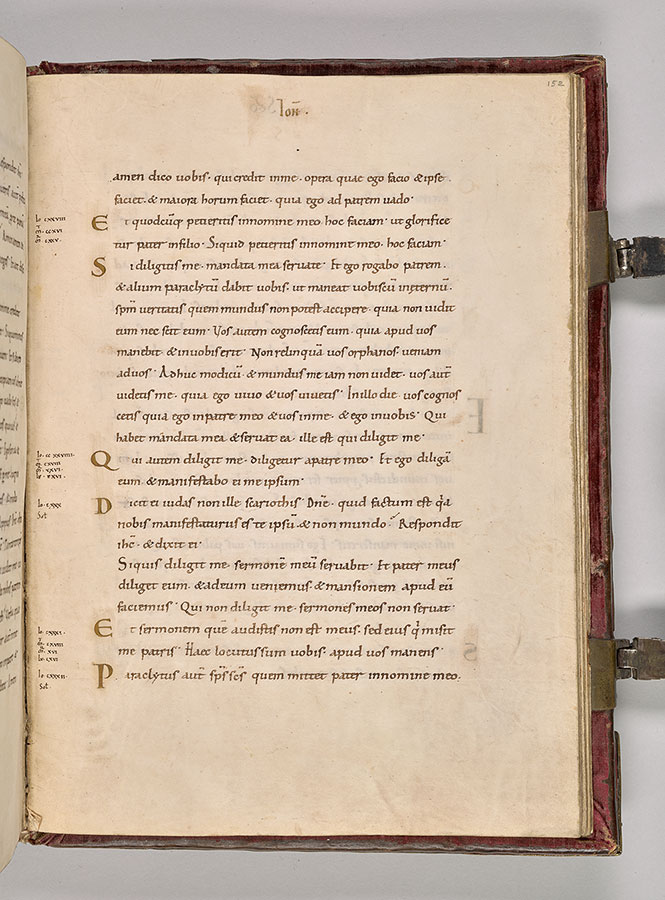 152
Ioħ.
amen dico uobis· qui credit inme· opera quae ego facio & ipse
faciet· & maiora horum faciet· quia ego ad patrem uado·
Et quodcūq; petieritis innomine meo· hoc faciam· ut glorifice
tur pater infilio· Siquid petieritis innomine meo· hoc faciam·
Si diligitis me· mandata mea seruate· Et ego rogabo patrem·
& alium paraclytū dabit uobis· ut maneat uobiscū inęternū·
spm̄ ueritatis quem mundus non potest accipere· quia non uidit
eum nec scit eum· Vos autem cognoscetis eum· quia apud uos
manebit· & inuobis erit· Non relinquā uos orphanos· ueniam
aduos· Adhuc modicū· & mundus me iam non uidet· uos aut̄
uidetis me· quia ego uiuo & uos uiuetis· In illo die· uos cognos
cetis quia ego inpatre meo & uos inme· & ego inuobis· Qui
habet mandata mea & seruat ea· ille est qui diligit me·
Qui autem diligit me· diligetur apatre meo· Et ego diligā
eum· & manifestabo ei me ipsum·
Dicit ei iudas non ille scariothis· Dn̄e· quid factum est q̄a
nobis manifestaturus es te ipsū· & non mundo· Respondit
ihc̄· & dixit ei·
Siquis diligit me· sermonē meū seruabit· Et pater meus
diliget eum· & adeum ueniemus· & mansionem apud eū
faciemus· Qui non diligit me· sermones meos non seruat·
Et sermonem quē audistis non est meus· sed eius q̇ misit
me patris· Haec locutussum uobis· apud uos manens·
Paraclytus aut̄ sp̄s sc̄s quem mittet pater innomine meo·